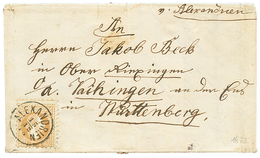 v. Alexandrien
An
Herrn Jakob Beck
in Ober Riexingen
Vaihingen an der Enz
in Württenberg,
ALEXANDR